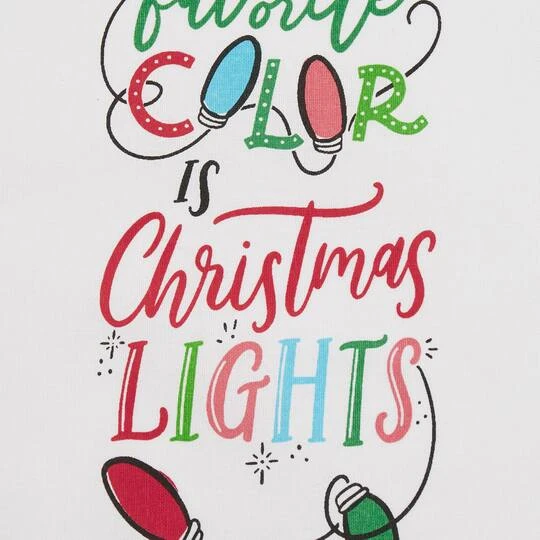 favorite
COLOR
IS
Christmas
LIGHTS